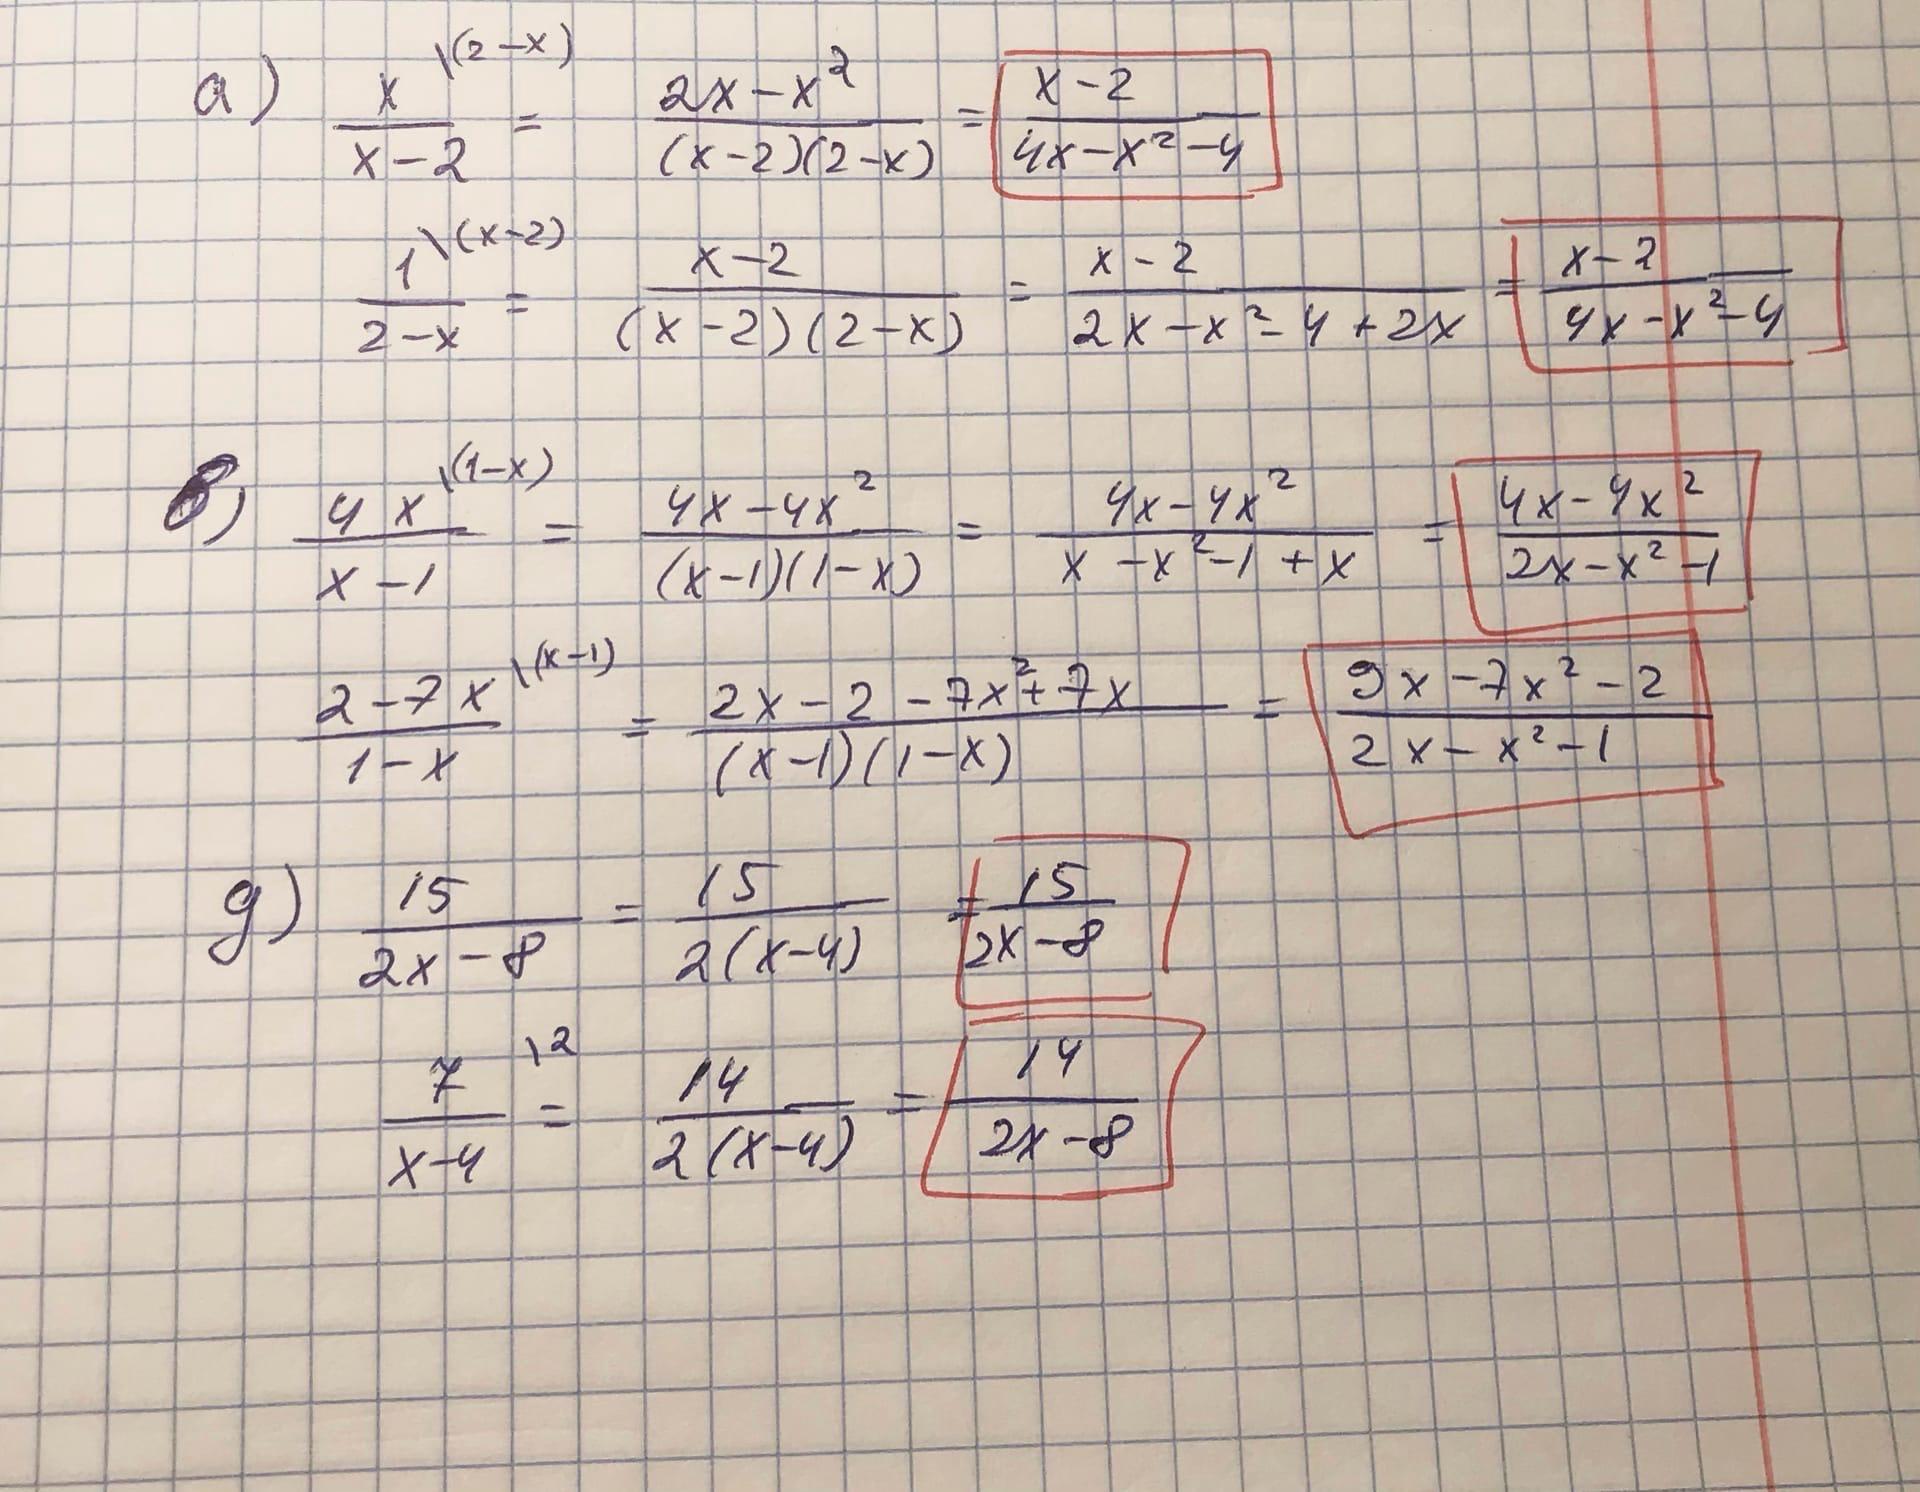 а) x/(x-2) \(2-x) = (2x-x²)/((x-2)(2-x)) = (x-2)/(4x-x²-4)
1/(2-x) \(x-2) = (x-2)/((x-2)(2-x)) = (x-2)/(2x-x²-4+2x) = (x-2)/(4x-x²-4)
в) 4x/(x-1) \(1-x) = (4x-4x²)/((x-1)(1-x)) = (4x-4x²)/(x-x²-1+x) = (4x-4x²)/(2x-x²-1)
(2-7x)/(1-x) \(x-1) = (2x-2-7x²+7x)/((x-1)(1-x)) = (9x-7x²-2)/(2x-x²-1)
g) 15/(2x-8) = 15/(2(x-4)) = 15/(2x-8)
7/(x-4) \2 = 14/(2(x-4)) = 14/(2x-8)